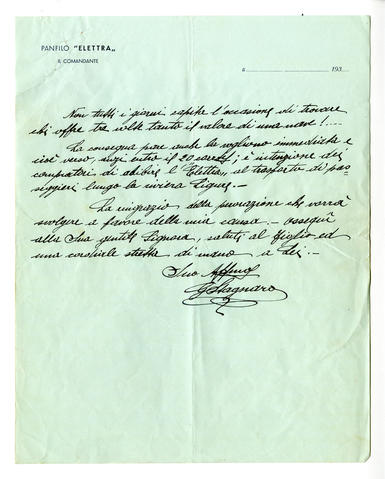 PANFILO "ELETTRA"
IL COMANDANTE
a 193
Non tutti i giorni capita l'occasione di trovare
chi offre tre volte tanto il valore di una nave!...
La consegna pare anche la vogliono immediata e
cioè verso, anzi entro il 20 corr; è intenzione dei
compratori di adibire l'Elettra, al trasporto di pas-
seggieri lungo la riviera Ligure.-
La ringrazio della premura che vorrà
svolgere a favore della mia causa.- ossequi
alla Sua gentile Signora, saluti al figlio ed
una cordiale stretta di mano a Lei.-
Suo Affmo
GStagnaro